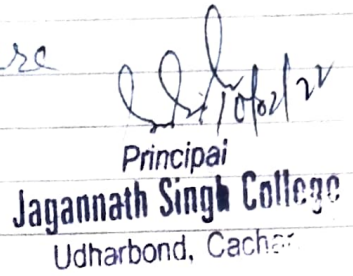 10/02/22
Principal
Jagannath Singh College
Udharbond, Cachar